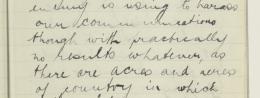 is using to harass
our communications
though with practically
no results whatever, as
there are acres and acres
of country in which